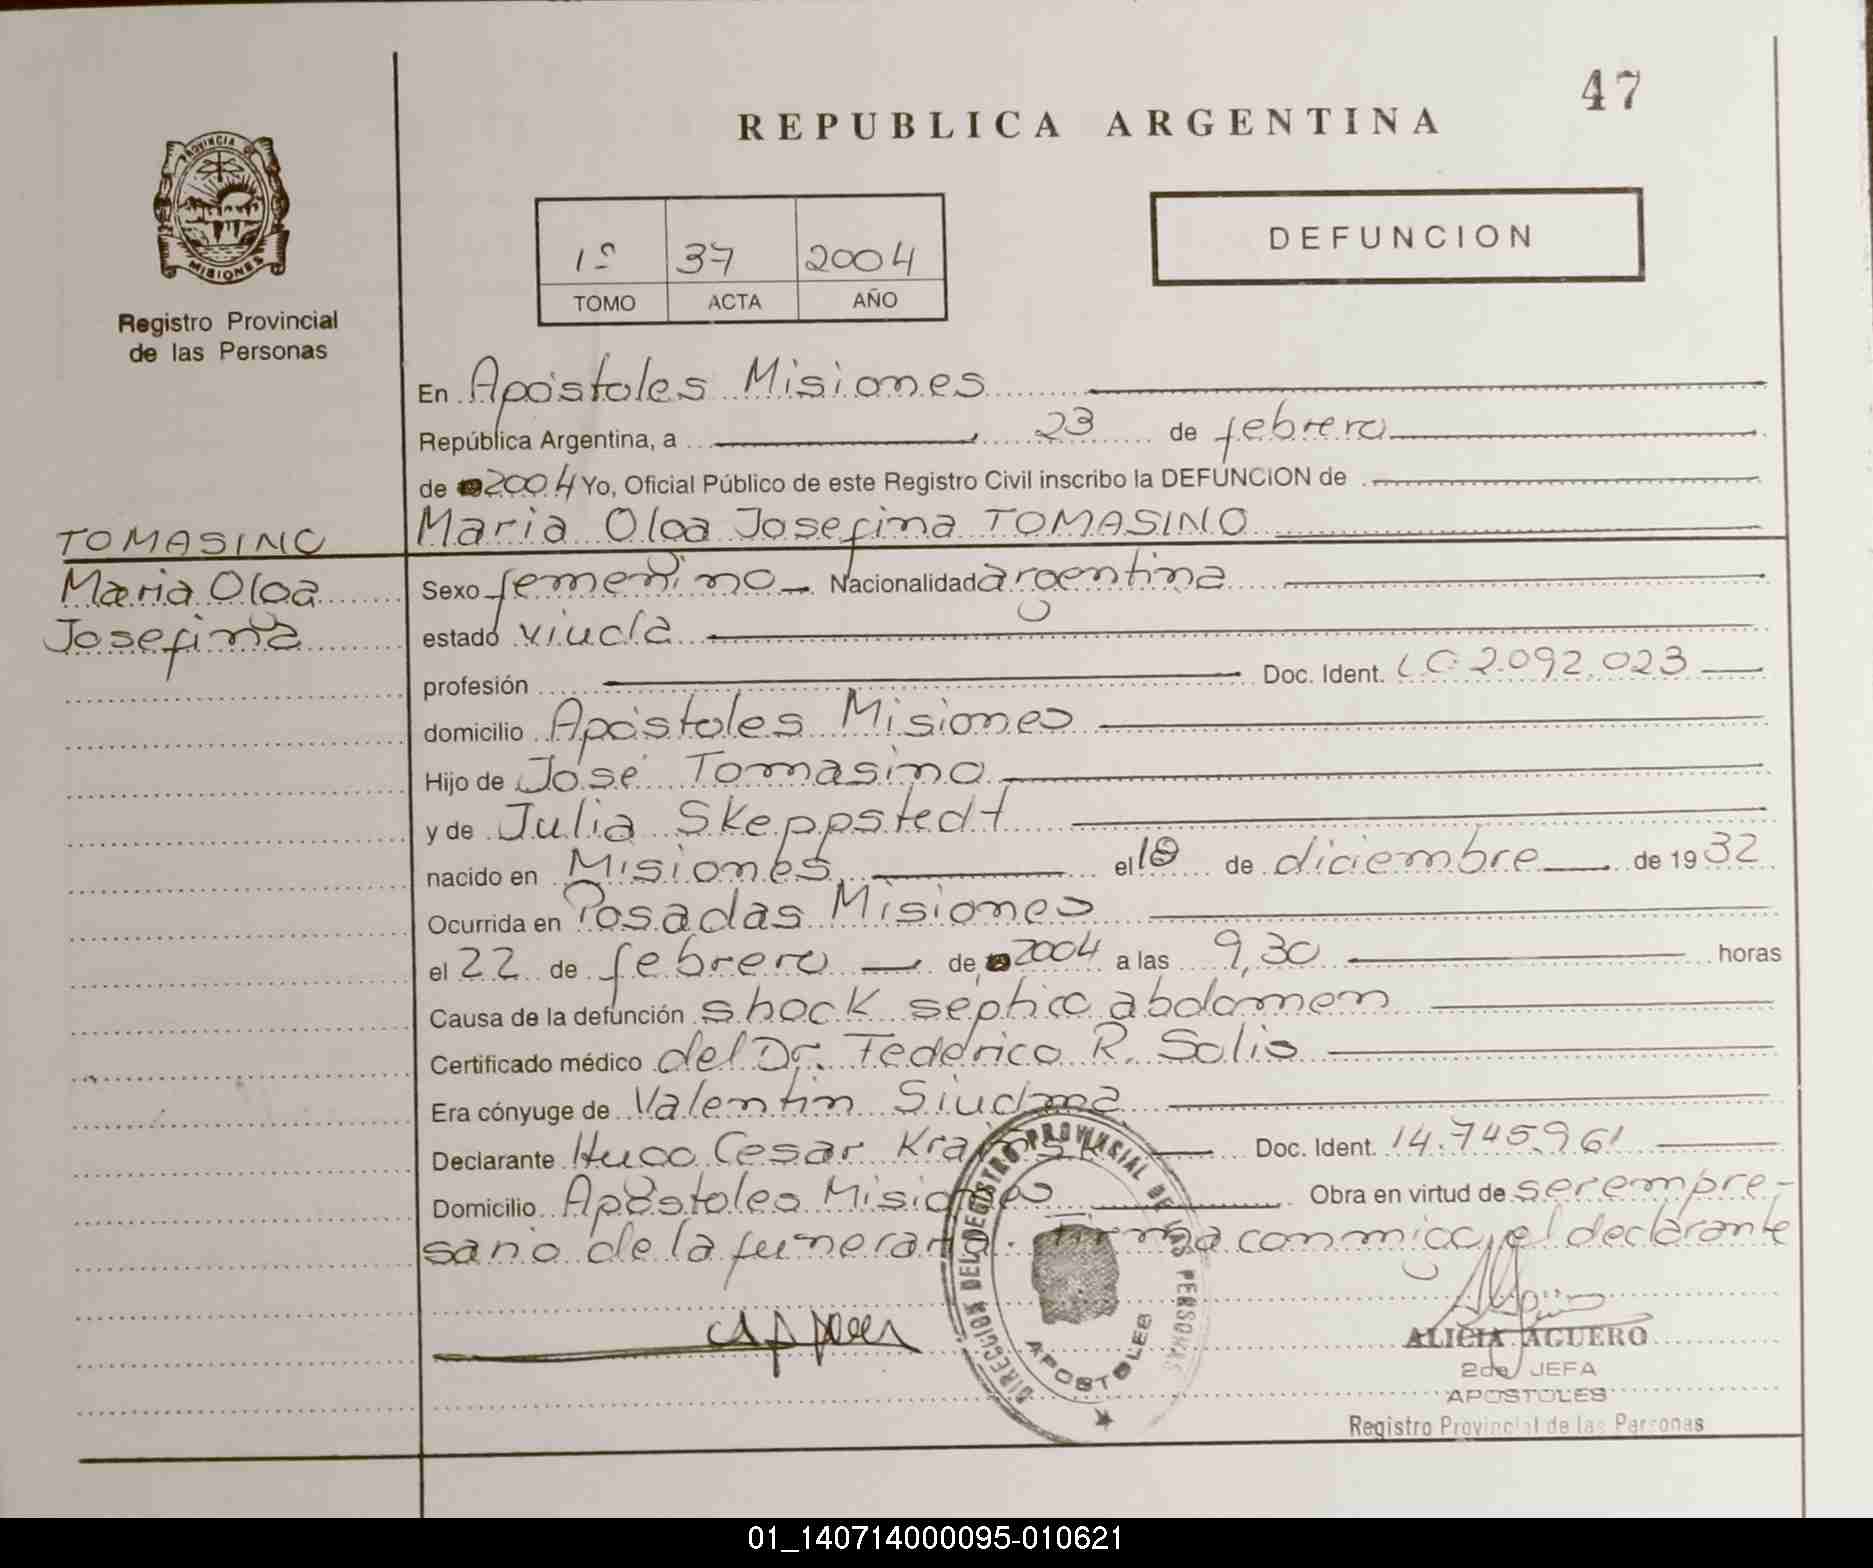 47
REPUBLICA ARGENTINA
PROVINCIA DE
MISIONES
Registro Provincial
de las Personas
1º 37 2004
TOMO ACTA AÑO
DEFUNCION
En Apóstoles Misiones
República Argentina, a 23 de febrero
de 2004 Yo, Oficial Público de este Registro Civil inscribo la DEFUNCION de
Maria Olga Josefina TOMASINO
TOMASINO
Maria Olga
Josefina
Sexo femenino Nacionalidad argentina
estado viuda
profesión Doc. Ident. LC 2.092.023
domicilio Apóstoles Misiones
Hijo de José Tomasino
y de Julia Skeppstedt
nacido en Misiones el de diciembre de 1932
Ocurrida en Posadas Misiones
el 22 de febrero de 2004 a las 9,30 horas
Causa de la defunción shock séptico abdomen
Certificado médico del Dr. Federico R. Solis
Era cónyuge de Valentin Siudma
Declarante Hugo Cesar Doc. Ident. 14.745.961
Domicilio Apóstoles Misiones Obra en virtud de ser empre-
sario de la funeraria. Firma conmigo el declarante
DIRECCION DEL REGISTRO PROVINCIAL DE LAS PERSONAS
APOSTOLES
ALICIA AGUERO
2da JEFA
APOSTOLES
Registro Provincial de las Personas
01_140714000095-010621